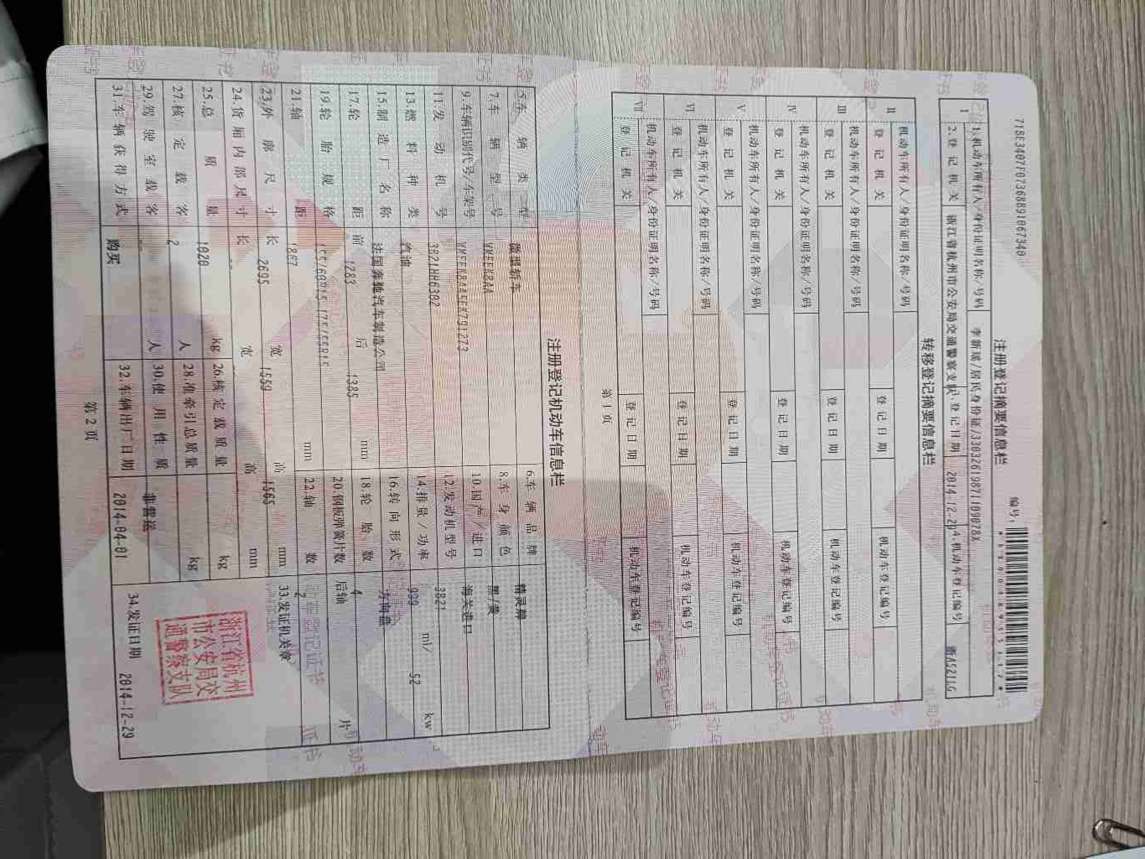 注册登记摘要信息栏
编号:
I
1.机动车所有人/身份证明名称/号码
2.登记机关 浙江省杭州市公安局交通警察支队 3.登记日期 2014-12-29 4.机动车登记编号
转移登记摘要信息栏
II 机动车所有人/身份证明名称/号码
登记机关 登记日期 机动车登记编号
III 机动车所有人/身份证明名称/号码
登记机关 登记日期 机动车登记编号
IV 机动车所有人/身份证明名称/号码
登记机关 登记日期 机动车登记编号
V 机动车所有人/身份证明名称/号码
登记机关 登记日期 机动车登记编号
VI 机动车所有人/身份证明名称/号码
登记机关 登记日期 机动车登记编号
VII 机动车所有人/身份证明名称/号码
登记机关 登记日期 机动车登记编号
第1页
注册登记机动车信息栏
5.车辆类型 微型轿车 6.车辆品牌 精灵牌
7.车辆型号 8.车身颜色 黑/黄
9.车辆识别代号/车架号 10.国产/进口 海关进口
11.发动机号 12.发动机型号 3B21
13.燃料种类 汽油 14.排量/功率 999 ml/ 52 kw
15.制造厂名称 法国奔驰汽车制造公司 16.转向形式 方向盘
17.轮距 前 1283 后 1385 mm 18.轮胎数 4
19.轮胎规格 155/60R15-175/55R15 20.钢板弹簧片数 后轴 片
21.轴距 1867 mm 22.轴数 2
23.外廓尺寸 长 2695 宽 1559 高 1565 mm
33.发证机关章
24.货厢内部尺寸 长 宽 高 mm
25.总质量 1020 kg 26.核定载质量 kg
27.核定载客 2 人 28.准牵引总质量 kg
29.驾驶室载客 人 30.使用性质 非营运
31.车辆获得方式 购买 32.车辆出厂日期 2014-04-01 34.发证日期 2014-12-29
浙江省杭州
市公安局交
通警察支队
第2页